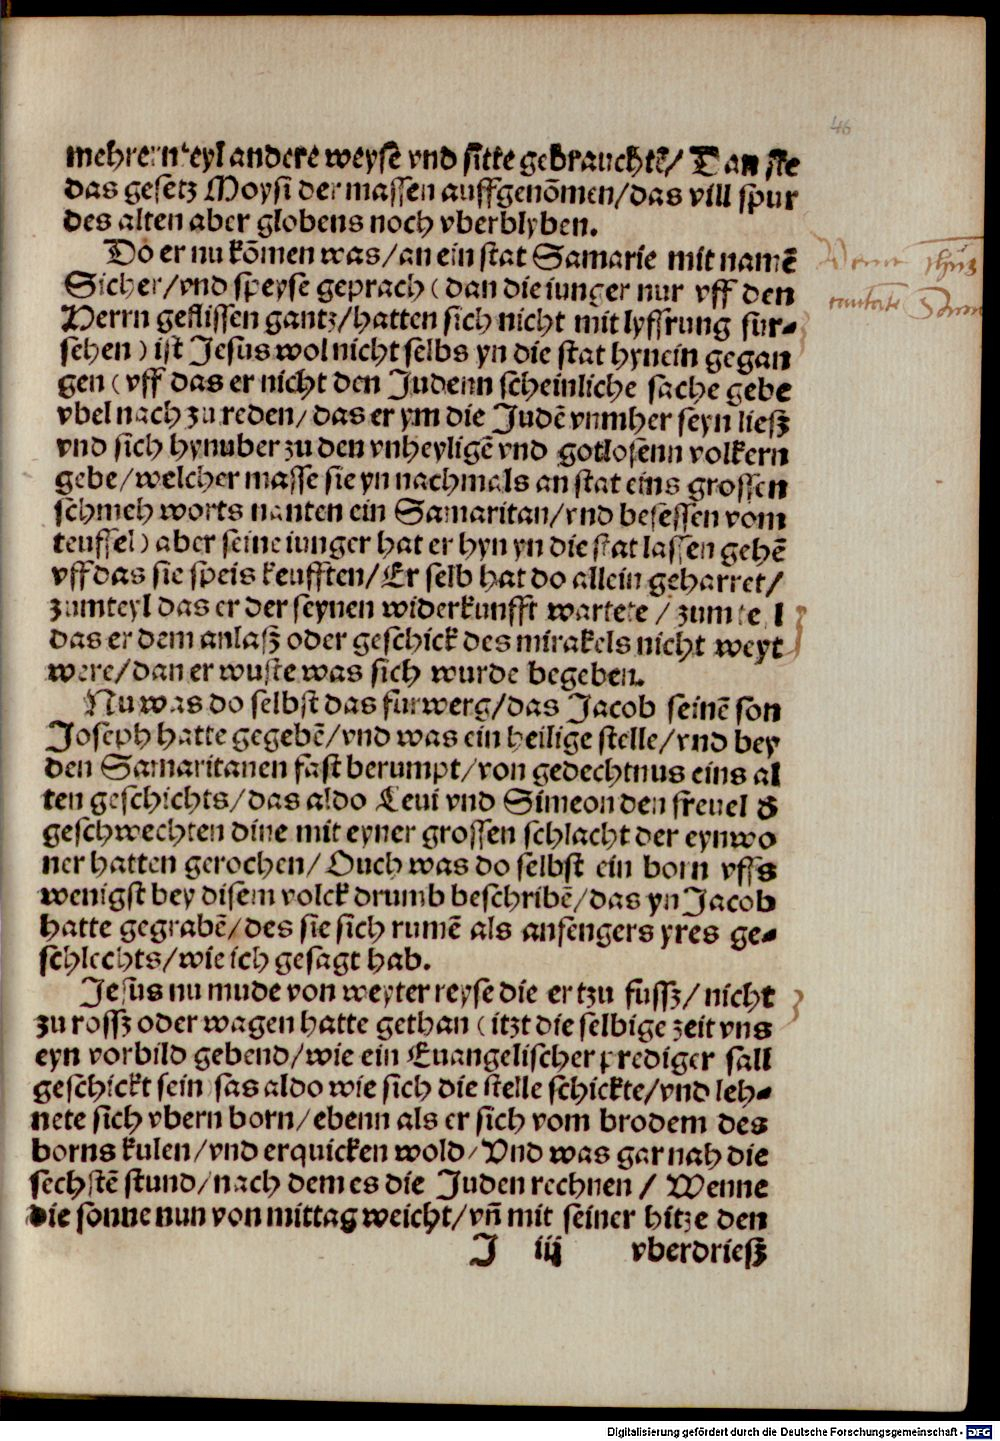 46
mehrern teyl andere weyse vnd sitte gebrauchte/ Dan sie
das gesetz Moysi der massen auffgenōmen/das vill spur
des alten aber globens noch vberblyben.
Do er nu kōmen was/an ein stat Samarie mit namē
Sicher/vnd speyse geprach (dan die iunger nur vff den
Herrn geflissen gantz/hatten sich nicht mit lyffrung fur-
sehen) ist Jesus wol nicht selbs yn die stat hynein gegan
gen (vff das er nicht den Judenn scheinliche sache gebe
vbel nach zu reden/das er ym die Judē vnmher seyn ließ
vnd sich hynuber zu den vnheyligē vnd gotlosenn volkern
gebe/welcher masse sie yn nachmals an stat eins grossen
schmeh worts nanten ein Samaritan/vnd besessen vom
teuffel) aber seine iunger hat er hyn yn die stat lassen gehē
vff das sie speis keufften/Er selb hat do allein geharret/
zumteyl das er der seynen widerkunfft wartete / zum teyl
das er dem anlaß oder geschick des mirakels nicht weyt
were/dan er wuste was sich wurde begeben.
Nu was do selbst das furwerg/das Jacob seinē son
Joseph hatte gegebē/vnd was ein heilige stelle/vnd bey
den Samaritanen fast berumpt/von gedechtnus eins al
ten geschichts/das aldo Leui vnd Simeon den freuel d
geschwechten dine mit eyner grossen schlacht der eynwo
ner hatten gerochen/ Ouch was do selbst ein born vffs
wenigst bey disem volck drumb beschribē/das yn Jacob
hatte gegrabē/des sie sich rumē als anfengers yres ge-
schlechts/wie ich gesagt hab.
Jesus nu mude von weyter reyse die er tzu fussz/nicht
zu rossz oder wagen hatte gethan (itzt die selbige zeit vns
eyn vorbild gebend/wie ein Euangelischer prediger sall
geschickt sein) sas aldo wie sich die stelle schickte/vnd leh-
nete sich vbern born/ebenn als er sich vom brodem des
borns kulen/vnd erquicken wold/Vnd was gar nah die
sechstē stund/nach dem es die Juden rechnen / Wenne
die sonne nun von mittag weicht/vn̄ mit seiner hitze den
J iij vberdrieß
Digitalisierung gefördert durch die Deutsche Forschungsgemeinschaft - DFG